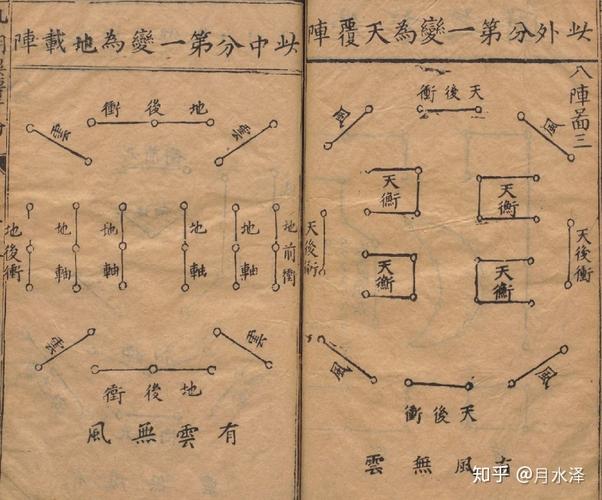 此外分第一變為天覆陣
八陣啚三
天後衝
風
風
天衡
天衡
天後衝
天後衝
天衡
天衡
風
風
天後衝
有風無雲
此中分第一變為地載陣
地後衝
雲
雲
地前衝
地軸
地軸
地軸
地軸
地後衝
雲
雲
地後衝
有雲無風
知乎 @月水泽